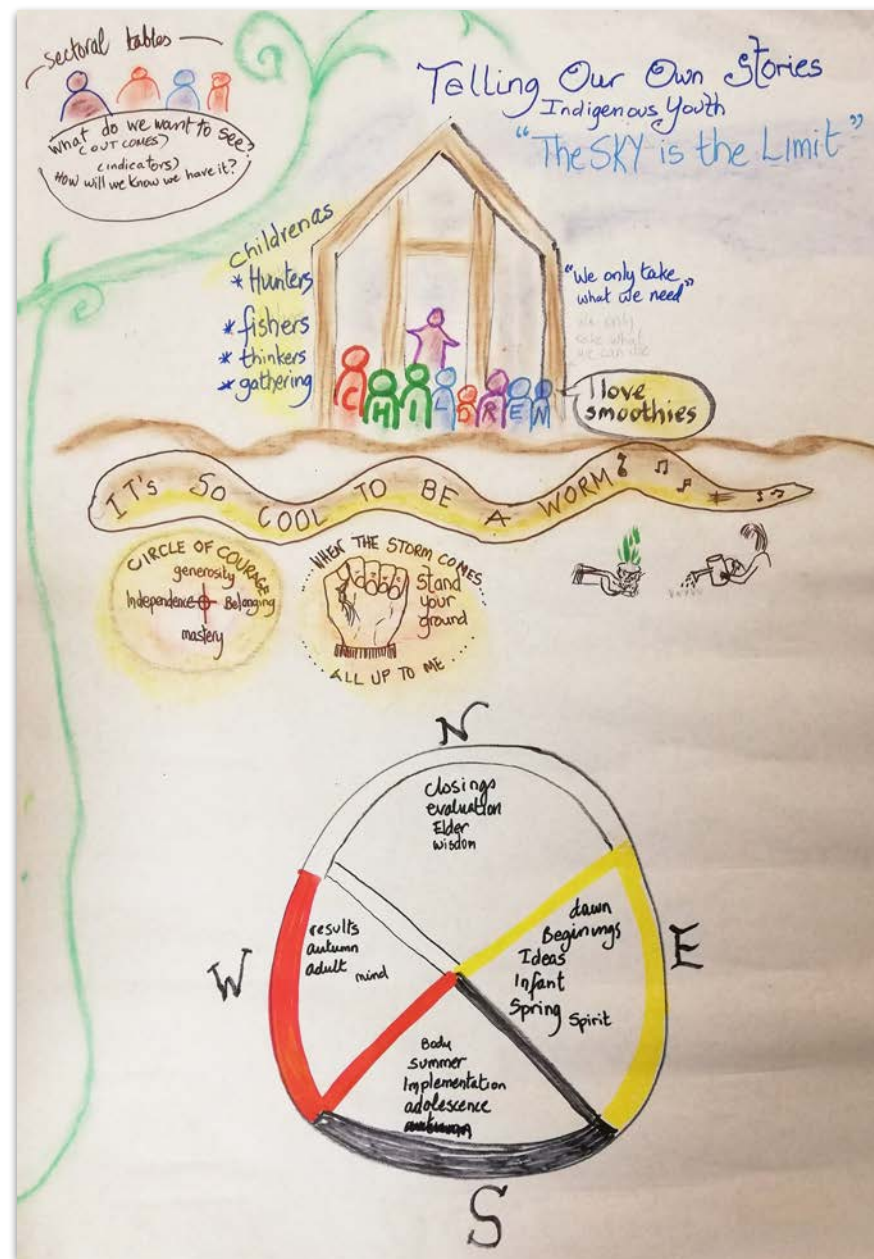 sectoral tables
What do we want to see?
(OUTCOMES)
(indicators)
How will we know we have it?
Telling Our Own Stories
Indigenous Youth
"The SKY is the Limit"
children as
* Hunters
* fishers
* thinkers
* gathering
"We only take
what we need"
we only
take what
we can use
CHILDREN
I love
smoothies
IT'S SO COOL TO BE A WORM
CIRCLE OF COURAGE
generosity
Independence Belonging
mastery
...WHEN THE STORM COMES...
Stand
your
ground
....ALL UP TO ME....
N
closings
evaluation
Elder
wisdom
W
results
autumn
adult
mind
E
dawn
Beginings
Ideas
Infant
Spring
Spirit
Body
Summer
Implementation
adolescence
S